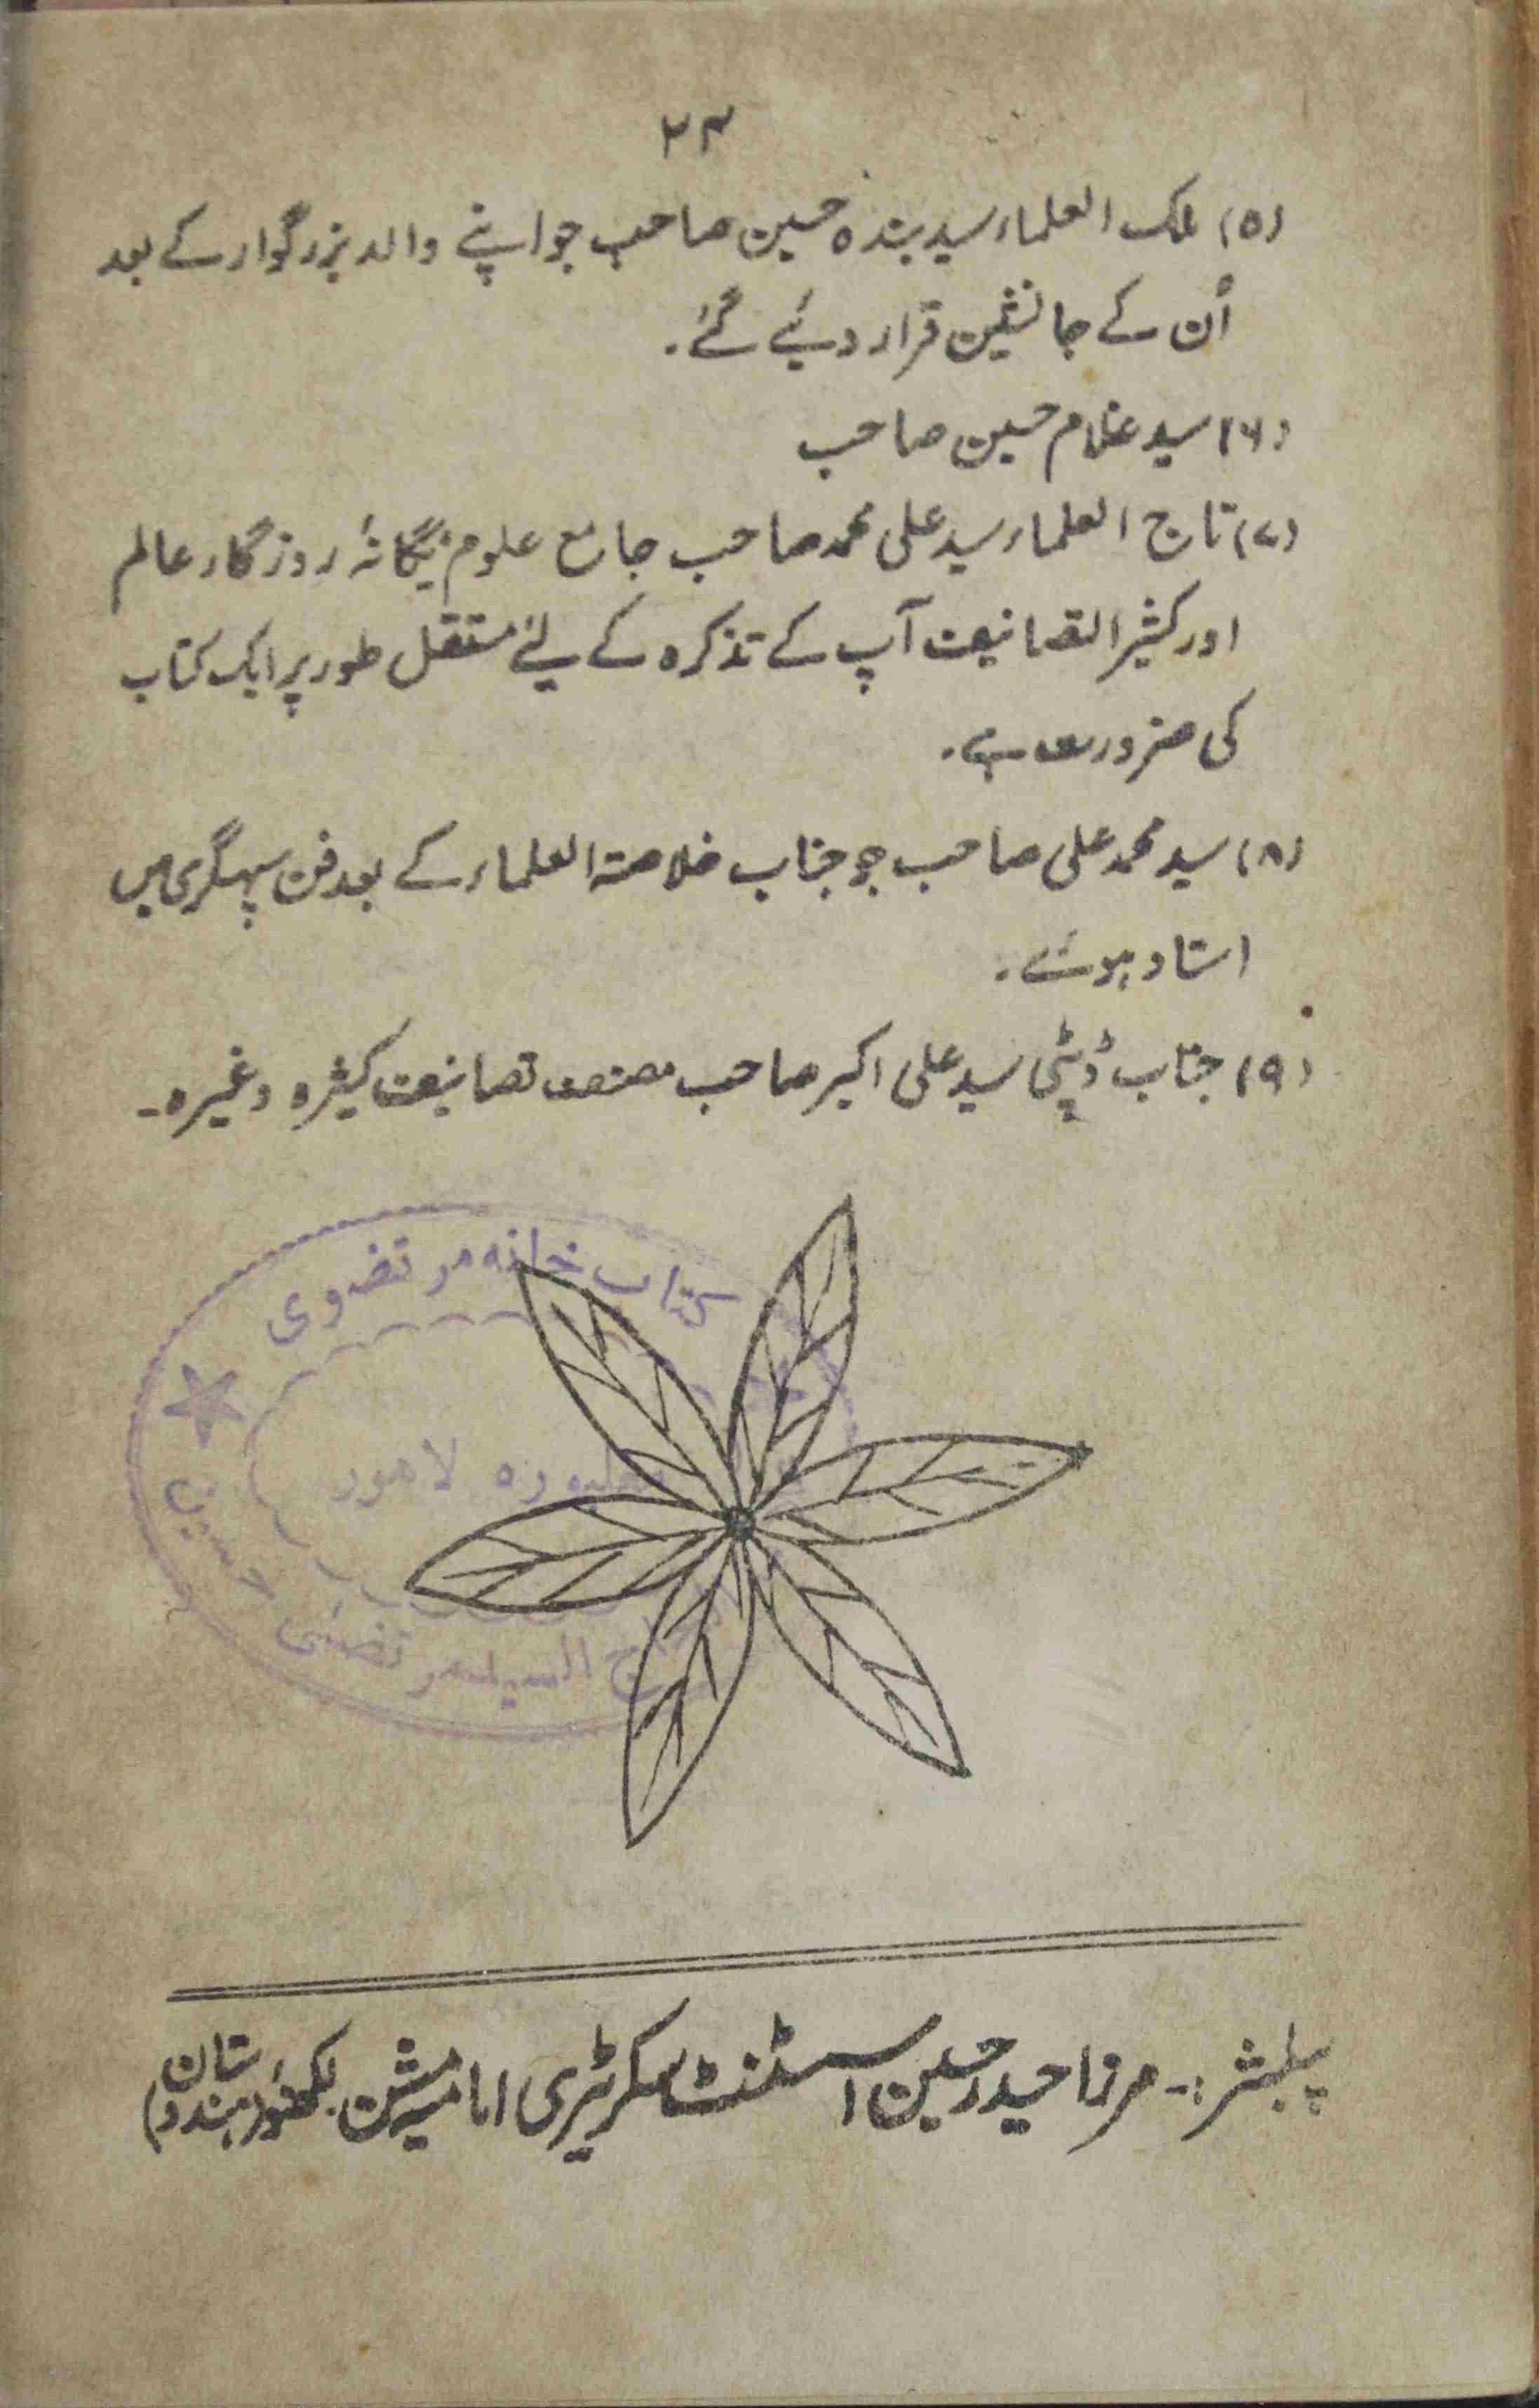 ۲۴
(۵) ملک العلماء سید بندہ حسین صاحب جو اپنے والد بزرگوار کے بعد
اُن کے جانشین قرار دیئے گئے۔
(۶) سید غلام حسین صاحب
(۷) تاج العلماء سید علی محمد صاحب جامع علوم یگانۂ روزگار عالم
اور کثیر التصانیف آپ کے تذکرہ کے لئے مستقل طور پر ایک کتاب
کی ضرورت ہے۔
(۸) سید محمد علی صاحب جو جناب خلاصۃ العلماء کے بعد فن سپہگری میں
استاد ہوئے۔
(۹) جناب ڈپٹی سید علی اکبر صاحب مصنف تصانیف کثیرہ وغیرہ۔
کتاب خانہ مرتضوی
مغلپورہ لاهور
السید مرتضیٰ حسین
پبلشر:۔ مرزا حیدر حسین اسسٹنٹ سکرٹیری امامیہ مشن لکھنؤ (ہندوستان)